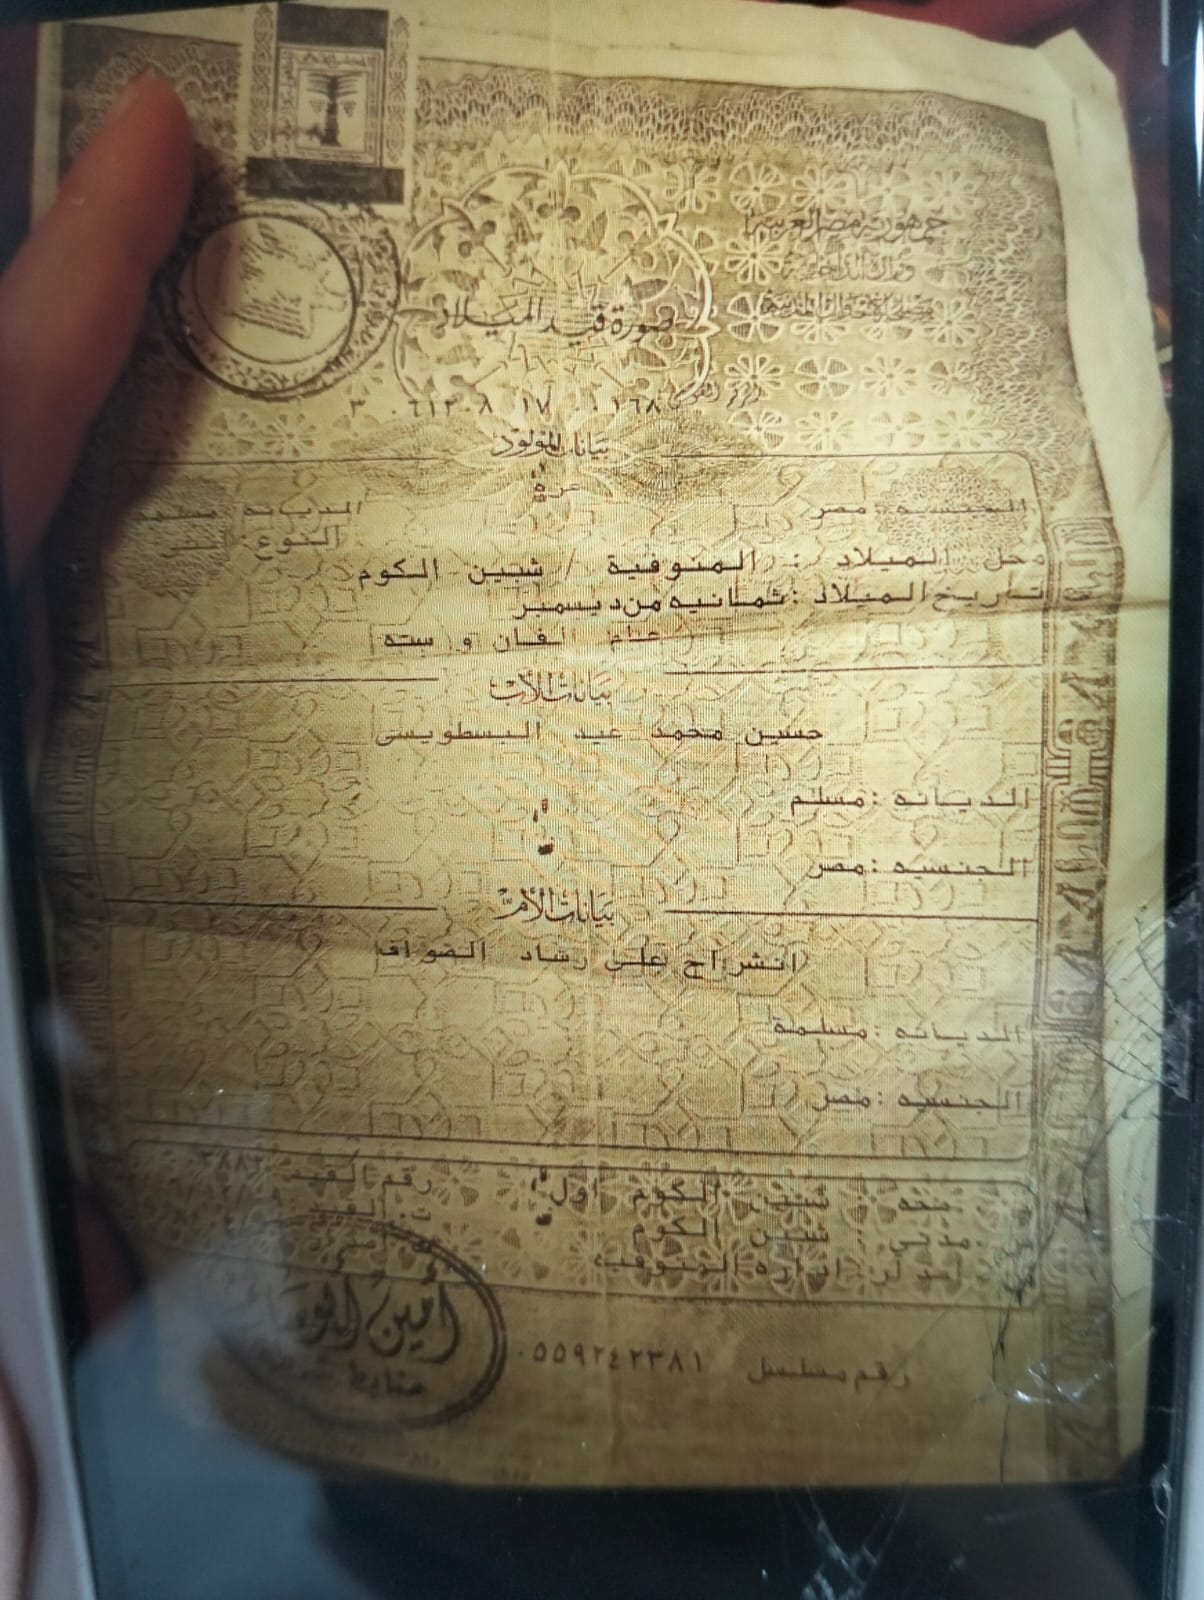 جمهورية مصر العربية
وزارة الداخلية
صورة قيد الميلاد
الرقم القومي ٣ ٠٦١٢٠٨ ١٧ ٠١١٦٨
بيانات المولود
عزه
الجنسيه : مصر الديانه : مسلمه
النوع :
محل الميلاد : المنوفية / شبين الكوم
تاريخ الميلاد : ثمانيه من ديسمبر
عام الفان و سته
بيانات الأب
حسين محمد عيد البسطويسى
الديانه : مسلم
الجنسيه : مصر
بيانات الأم
انشراح على رشاد الصواف
الديانه : مسلمة
الجنسيه : مصر
صحه شبين الكوم اول رقم القيد
مدنى : شبين الكوم ت. القيد
اداره المنوفيه
أمين
ضابط
رقم مسلسل ٠٥٥٩٢٤٢٣٨١